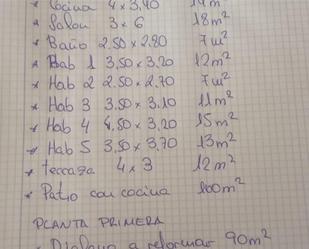 * Cocina 4 x 3,40 14 m²
* Salon 3 x 6 18 m²
* Baño 2.50 x 2.80 7 m²
* Hab 1 3,50 x 3,20 12 m²
* Hab 2 2.50 x 2.70 7 m²
* Hab 3 3.50 x 3.10 11 m²
* Hab 4 4,50 x 3,20 15 m²
* Hab 5 3,50 x 3,70 13 m²
* terraza 4 x 3 12 m²
* Patio con cocina 100 m²
PLANTA PRIMERA
* Diafana a reformar 90 m²